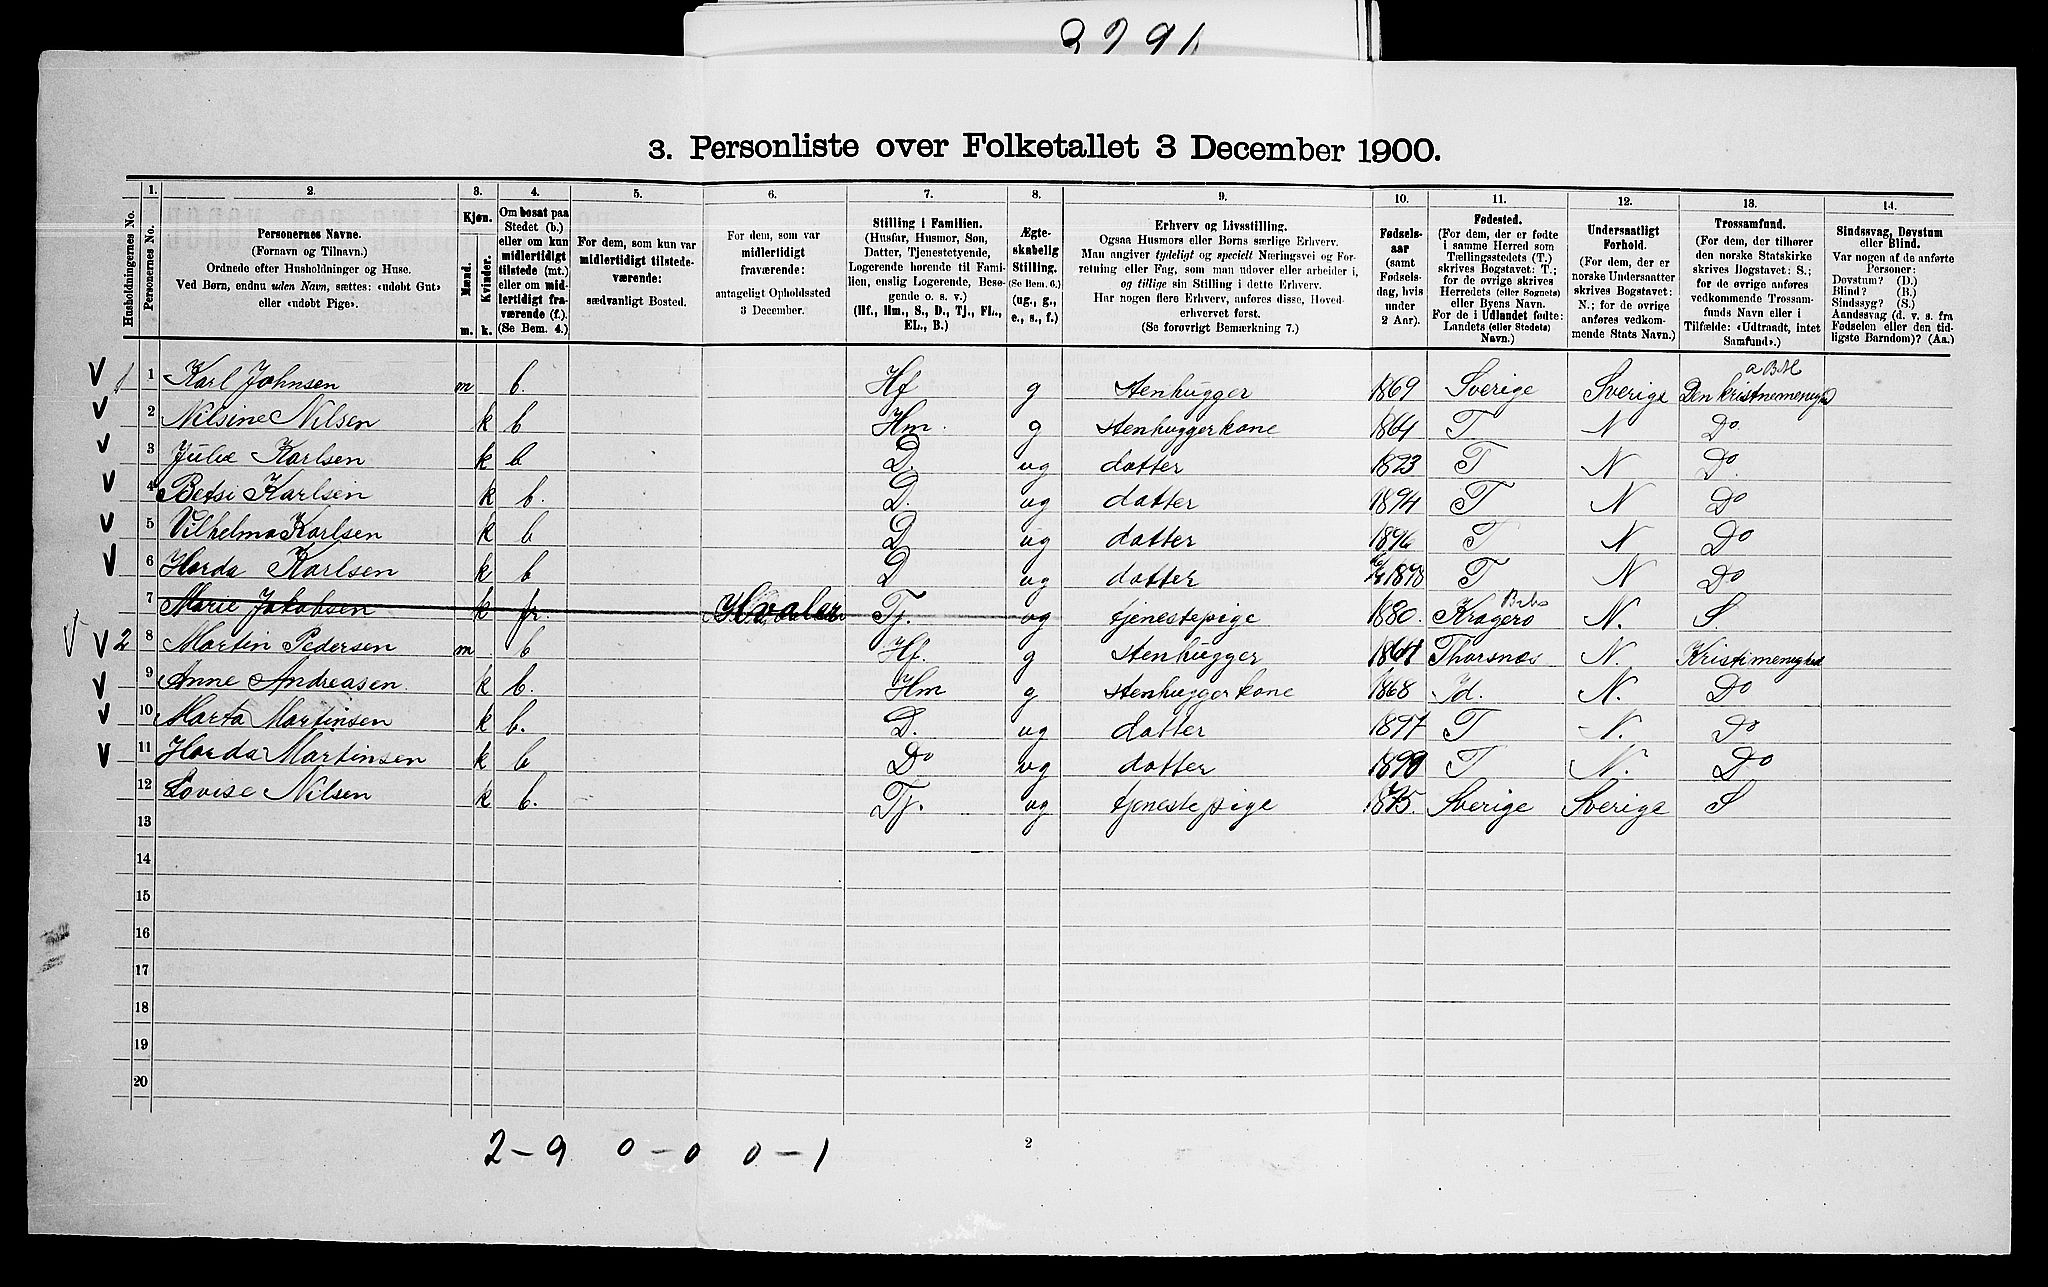 2291
3. Personliste over Folketallet 3 December 1900.
Husholdningernes No.
1. Personernes No.
2. Personernes Navne. (Fornavn og Tilnavn.) Ordnede efter Husholdninger og Huse. Ved Børn, endnu uden Navn, sættes: «udøbt Gut» eller «udøbt Pige».
3. Kjøn. Mænd. m. Kvinder. k.
4. Om bosat paa Stedet (b.) eller om kun midlertidigt tilstede (mt.) eller om midlertidigt fraværende (f.). (Se Bem. 4.)
5. For dem, som kun var midlertidigt tilstedeværende: sædvanligt Bosted.
6. For dem, som var midlertidigt fraværende: antageligt Opholdssted 3 December.
7. Stilling i Familien. (Husfar, Husmor, Søn, Datter, Tjenestetyende, Logerende hørende til Familien, enslig Logerende, Besøgende o. s. v.) (Hf., Hm., S., D., Tj., FL., EL., B.)
8. Ægteskabelig Stilling. (Se Bem. 6.) (ug., g., e., s., f.)
9. Erhverv og Livsstilling. Ogsaa Husmors eller Børns særlige Erhverv. Man angiver tydeligt og specielt Næringsvei og Forretning eller Fag, som man udøver eller arbeider i, og tillige sin Stilling i dette Erhverv. Har nogen flere Erhverv, anføres disse, Hovederhvervet først. (Se forøvrigt Bemærkning 7.)
10. Fødselsaar (samt Fødselsdag, hvis under 2 Aar).
11. Fødested. (For dem, der er fødte i samme Herred som Tællingsstedets (T.) skrives Bogstavet: T.; for de øvrige skrives Herredets (eller Sognets) eller Byens Navn. For de i Udlandet fødte: Landets (eller Stedets) Navn.)
12. Undersaatligt Forhold. (For dem, der er norske Undersaatter skrives Bogstavet: N.; for de øvrige anføres vedkommende Stats Navn.)
13. Trossamfund. (For dem, der tilhører den norske Statskirke skrives Bogstavet: S.; for de øvrige anføres vedkommende Trossamfunds Navn eller i Tilfælde: «Udtraadt, intet Samfund».)
14. Sindssvag, Døvstum eller Blind. Var nogen af de anførte Personer: Døvstum? (D.) Blind? (B.) Sindssyg? (S.) Aandssvag (d. v. s. fra Fødselen eller den tidligste Barndom)? (Aa.)
1 1 Karl Johnsen m b. Hf g stenhugger 1869 Sverige Sverige Den kristnemenighed
2 Nilsine Nilsen k b Hm. g stenhuggerkone 1864 T N Do
3 Julie Karlsen k b D. ug datter 1893 T N Do
4 Betsi Karlsen k b. D. ug datter 1894 T N Do
5 Vilhelma Karlsen k b D ug datter 1896 T N Do
6 Harda Karlsen k b D ug datter 1898 T N Do
7 Marie Jakobsen k fr. Hvaler Tj. ug tjenestepige 1880. Kragerø N. S.
2 8 Martin Pedersen m b Hf. g stenhugger Thorsnæs N. Kristimenighed
9 Anne Andreasen. k b. Hm g stenhuggerkone 1868 Id. N. Do
10 Marta Martinsen k b. D. ug datter 1897 T N. Do
11 Harda Martinsen k b Do ug datter T N. Do
12 Lovise Nilsen k b. Tj. ug tjenestepige 1875. Sverige Sverige S
13
14
15
16
17
18
19
20
2-9 0-0 0-1
2